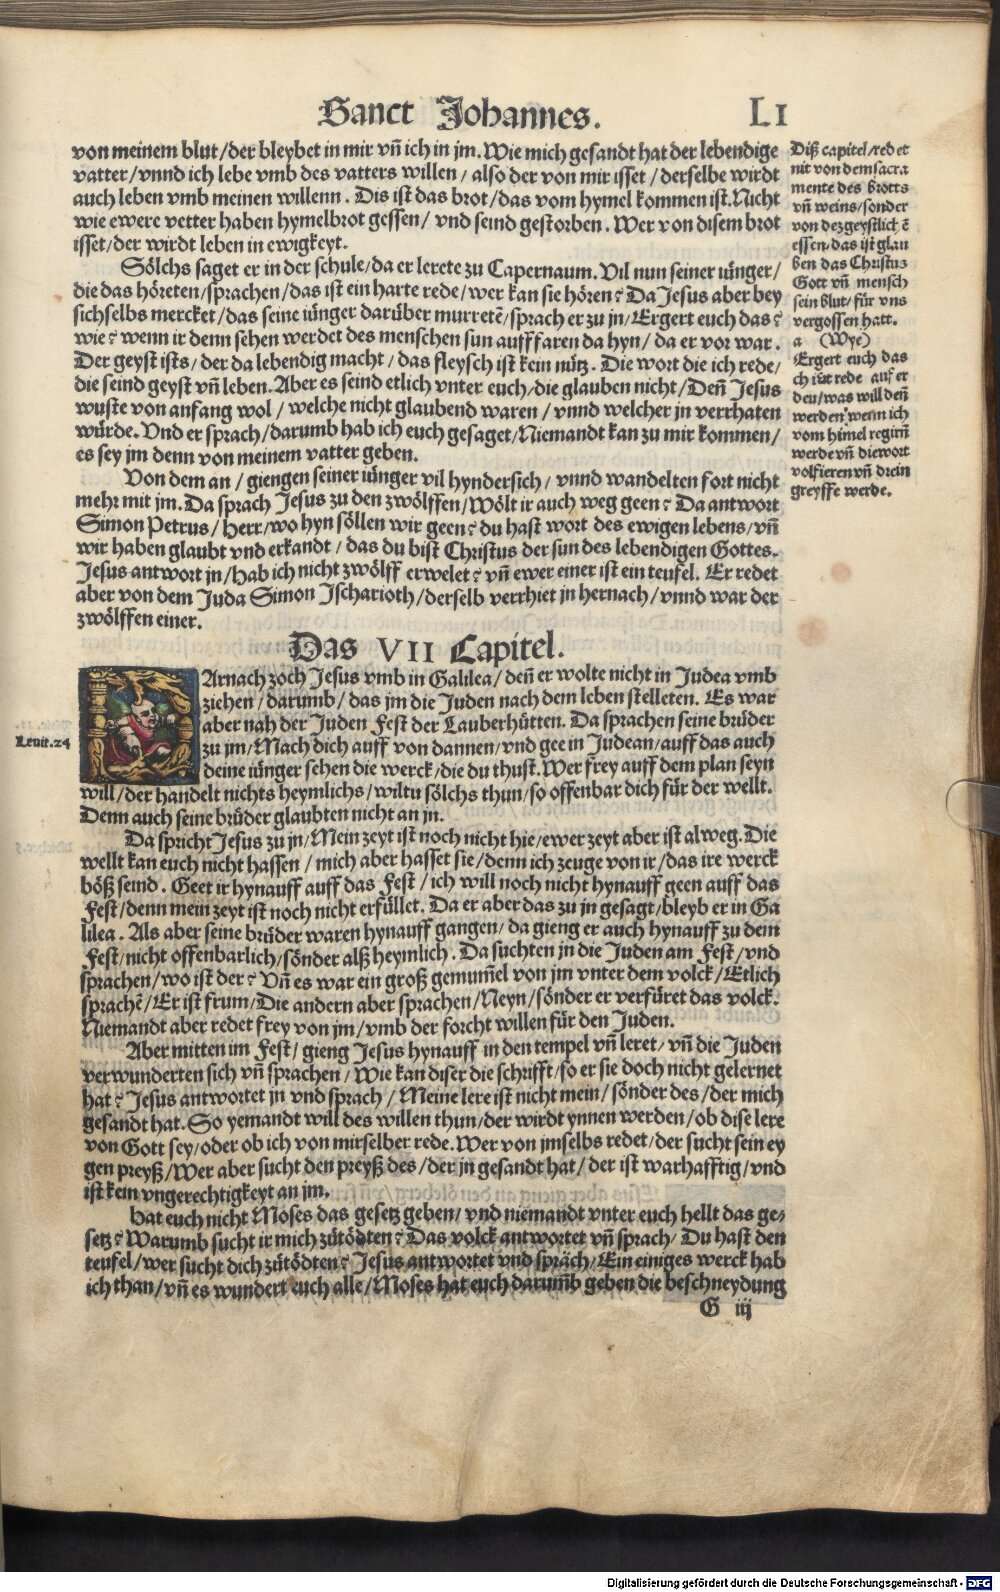 Sanct Johannes. LI
von meinem blut/der bleybet in mir vñ ich in jm. Wie mich gesandt hat der lebendige
vatter/vnnd ich lebe vmb des vatters willen/also der von mir isset/derselbe wirdt
auch leben vmb meinen willenn. Dis ist das brot/das vom hymel kommen ist. Nicht
wie ewere vetter haben hymelbrot gessen/vnd seind gestorben. Wer von disem brot
isset/der wirdt leben in ewigkeyt.
Sölchs saget er in der schule/da er lerete zu Capernaum. Vil nun seiner iünger/
die das höreten/sprachen/das ist ein harte rede/wer kan sie hören? Da Jesus aber bey
sich selbs mercket/das seine iünger darüber murretē/sprach er zu jn/Ergert euch das?
wie? wenn ir denn sehen werdet des menschen sun aufffaren da hyn/da er vor war.
Der geyst ists/der da lebendig macht/das fleysch ist kein nütz. Die wort die ich rede/
die seind geyst vñ leben. Aber es seind etlich vnter euch/die glauben nicht/Deñ Jesus
wuste von anfang wol/welche nicht glaubend waren/vnnd welcher jn verrhaten
würde. Vnd er sprach/darumb hab ich euch gesaget/Niemandt kan zu mir kommen/
es sey jm denn von meinem vatter geben.
Von dem an/giengen seiner iünger vil hyndersich/vnnd wandelten fort nicht
mehr mit jm. Da sprach Jesus zu den zwölffen/Wölt ir auch weg geen? Da antwort
Simon Petrus/Herr/wo hyn söllen wir geen? du hast wort des ewigen lebens/vñ
wir haben glaubt vnd erkandt/das du bist Christus der sun des lebendigen Gottes.
Jesus antwort jn/hab ich nicht zwölff erwelet? vñ ewer einer ist ein teufel. Er redet
aber von dem Juda Simon Ischarioth/derselb verrhiet jn hernach/vnnd war der
zwölffen einer.
Diß capitel redet
nit von dem sacra
mente des brotts
vñ weins/sonder
von dez geystlichē
essen/das ist glau
ben das Christus
Gott vñ mensch
sein blut/für vns
vergossen hatt.
a (Wye)
Ergert euch das
werden wenn ich
vom himel regirñ
werde vñ die wort
volfieren vñ drein
greyffe werde.
Das VII Capitel.
DArnach zoch Jesus vmb in Galilea/deñ er wolte nicht in Judea vmb
ziehen/darumb/das jm die Juden nach dem leben stelleten. Es war
aber nah der Juden Fest der Lauberhütten. Da sprachen seine brüder
Leuit.24
zu jm/Mach dich auff von dannen/vnd gee in Judean/auff das auch
deine iünger sehen die werck/die du thust. Wer frey auff dem plan seyn
will/der handelt nichts heymlichs/wiltu sölchs thun/so offenbar dich für der wellt.
Denn auch seine brüder glaubten nicht an jn.
Da spricht Jesus zu jn/Mein zeyt ist noch nicht hie/ewer zeyt aber ist alweg. Die
wellt kan euch nicht hassen/mich aber hasset sie/denn ich zeuge von ir/das ire werck
böß seind. Geet ir hynauff auff das Fest/ich will noch nicht hynauff geen auff das
Fest/denn mein zeyt ist noch nicht erfüllet. Da er aber das zu jn gesagt/bleyb er in Ga
lilea. Als aber seine brüder waren hynauff gangen/da gieng er auch hynauff zu dem
Fest/nicht offenbarlich/sönder alß heymlich. Da suchten jn die Juden am Fest/vnd
sprachen/wo ist der? Vñ es war ein groß gemum̄el von jm vnter dem volck/Etlich
sprachē/Er ist frum/Die andern aber sprachen/Neyn/sönder er verfüret das volck.
Niemandt aber redet frey von jm/vmb der forcht willen für den Juden.
Aber mitten im Fest/gieng Jesus hynauff in den tempel vñ leret/vñ die Juden
verwunderten sich vñ sprachen/Wie kan diser die schrifft/so er sie doch nicht gelernet
hat? Jesus antwortet jn vnd sprach/Meine lere ist nicht mein/sönder des/der mich
gesandt hat. So yemandt will des willen thun/der wirdt ynnen werden/ob dise lere
von Gott sey/oder ob ich von mir selber rede. Wer von jm selbs redet/der sucht sein ey
gen preyß/Wer aber sucht den preyß des/der jn gesandt hat/der ist warhafftig/vnd
ist kein vngerechtigkeyt an jm.
Hat euch nicht Moses das gesetz geben/vnd niemandt vnter euch hellt das ge/
setz? Warumb sucht ir mich zütödten? Das volck antwortet vñ sprach/Du hast den
teufel/wer sucht dich zütödten? Jesus antwortet vnd spräch/Ein einiges werck hab
ich than/vñ es wundert euch alle/Moses hat euch darum̄b geben die beschneydung
G iij
Digitalisierung gefördert durch die Deutsche Forschungsgemeinschaft - DFG